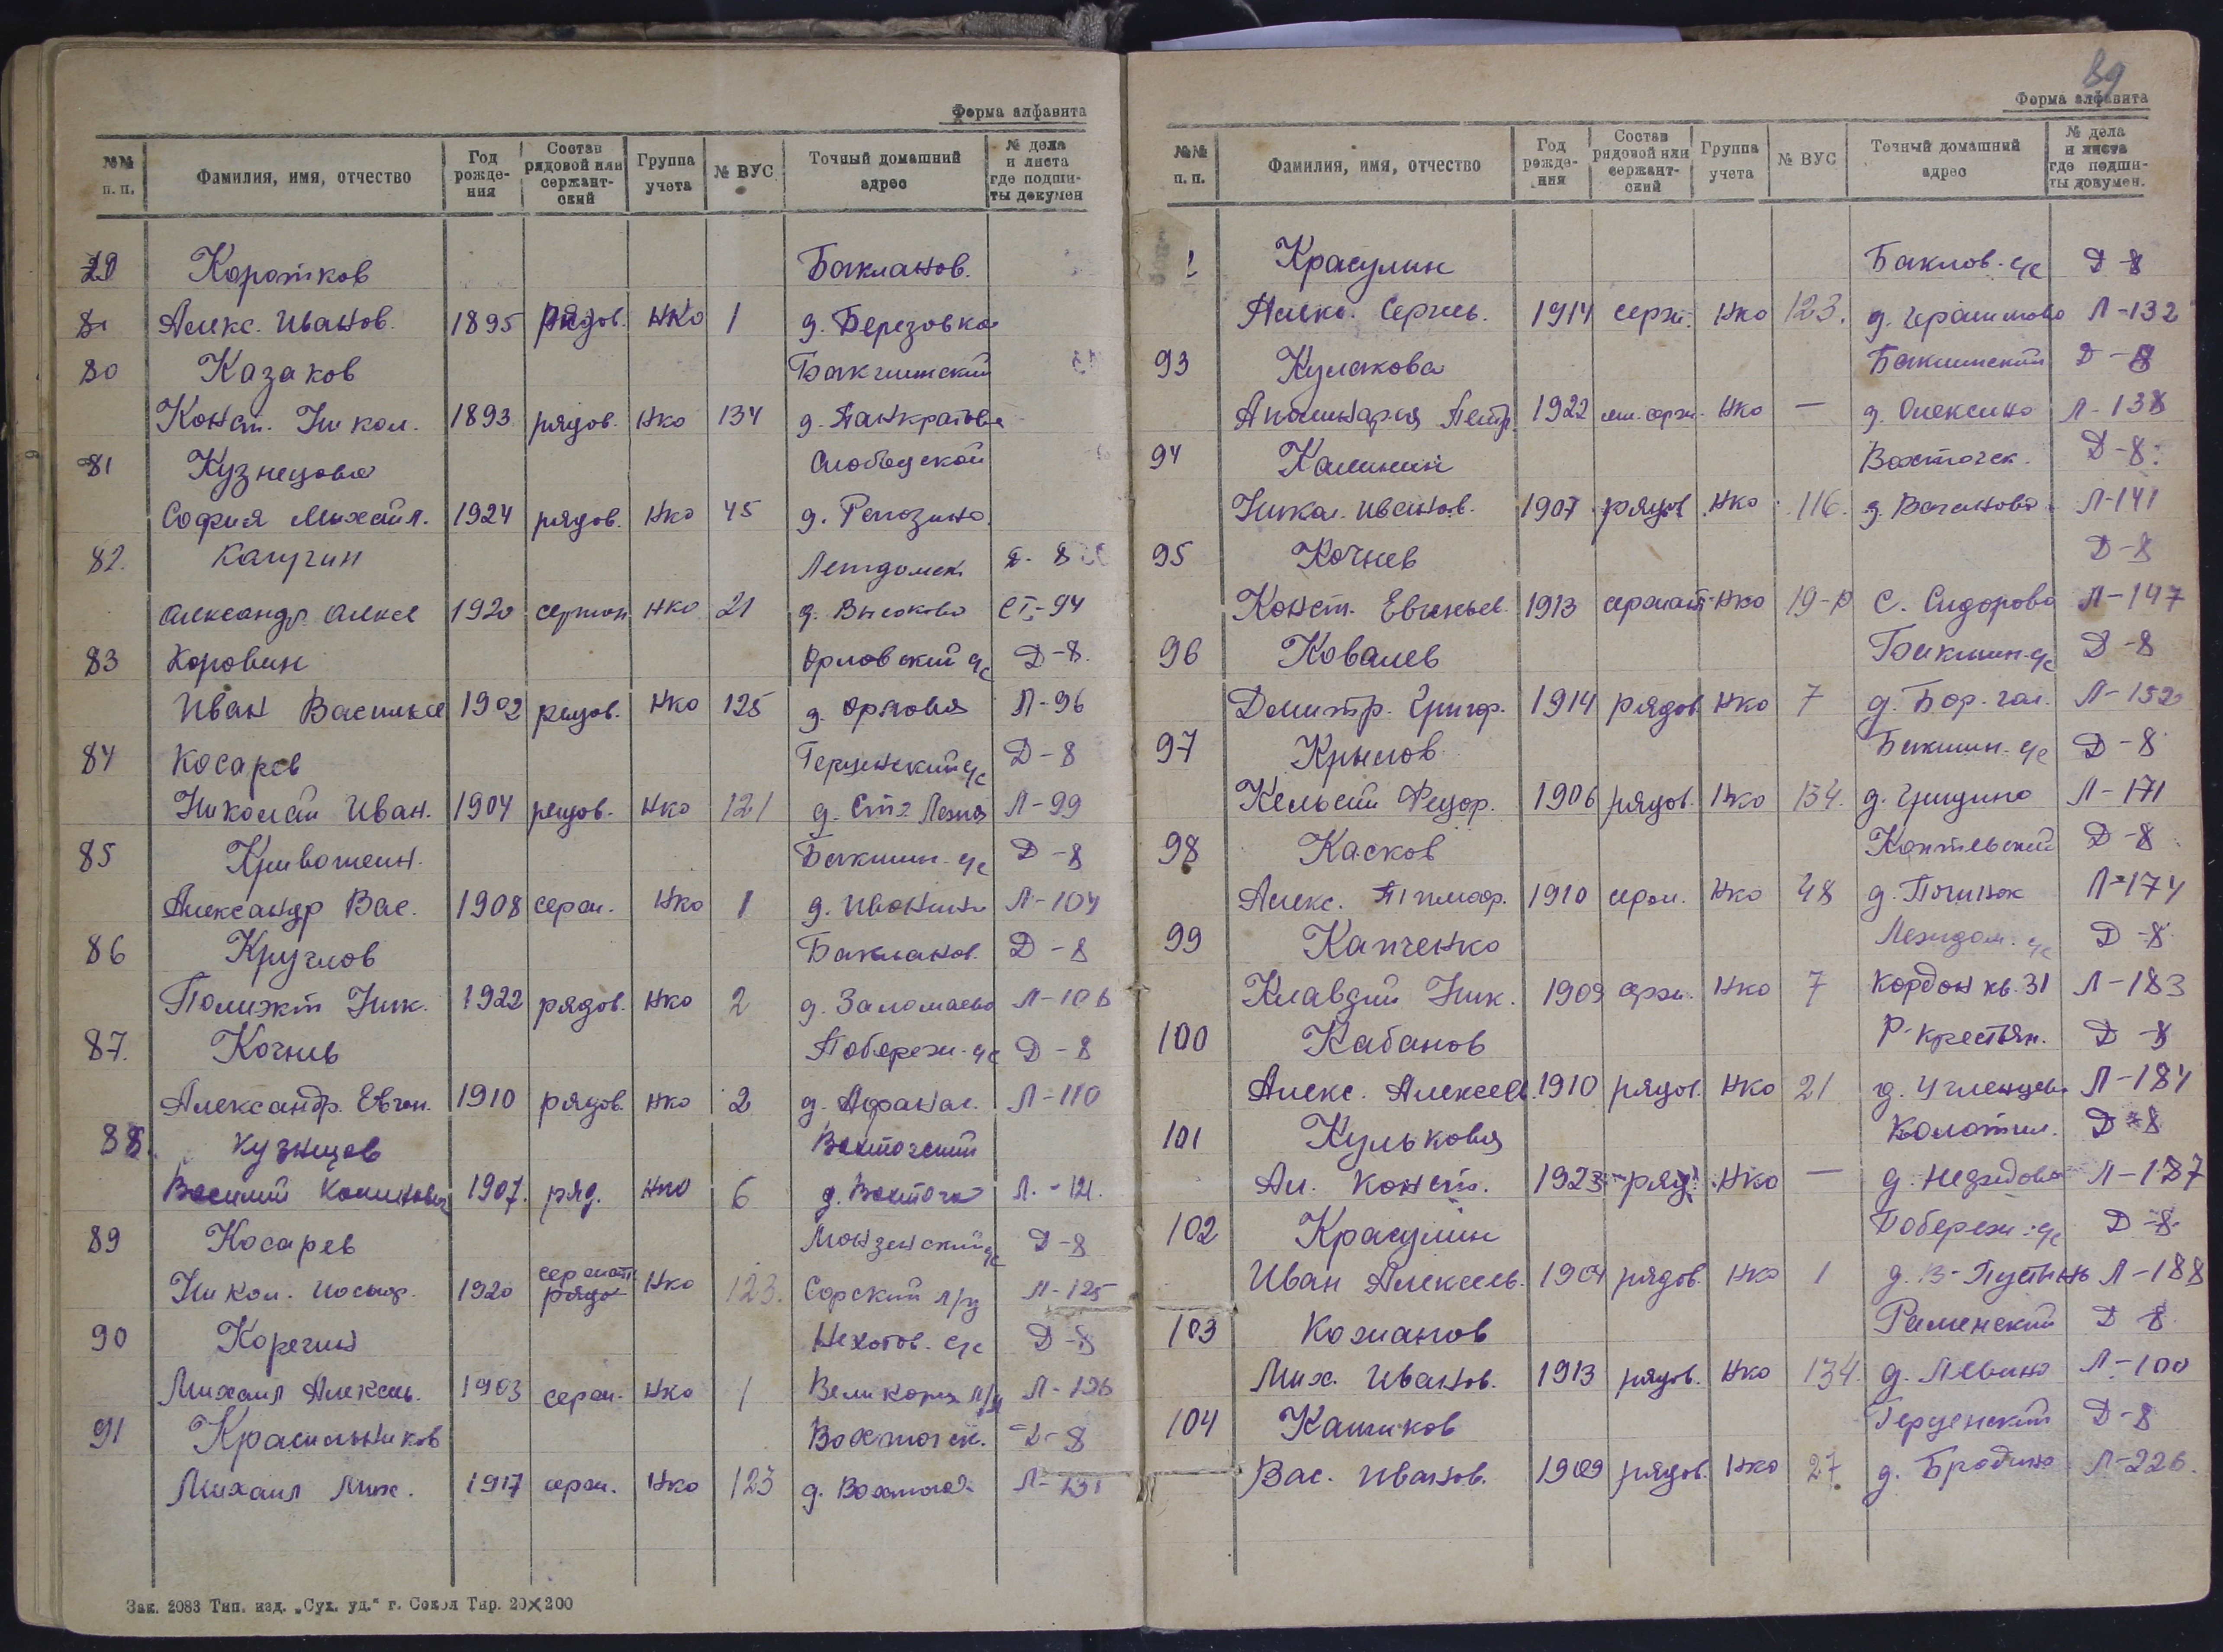 Форма алфавита
№№ п. п. Фамилия, имя, отчество Год рождения Состав рядовой или сержантский Группа учета № ВУС Точный домашний адрес № дела и листа где подшиты докумен
Коротков Бакланов.
Алекс. Иванов. 1895 рядов. НКО 1 д. Березовка
80 Казаков
Конст. Никол. 1893 рядов. НКО 134 д. Панкратова
81 Кузнецова Слободской
София Михайл. 1924 рядов. НКО 45 д. Репозино
82. Леждомск. Д-8
Александр Алексе 1920 сержан НКО 21 д. Высоково СТ-94
83 Коровин Орловский с/с Д-8.
Иван Василье 1902 рядов. НКО 125 д. Орлова Л-96
84 Косарев Герценский с/с Д-8
Николай Иван. 1904 рядов. НКО 121 д. Л-99
85 с/с Д-8
Александр Вас. 1908 серж. НКО 1 д. Л-104
86 Круглов Бакланов. Д-8
Ник. 1922 рядов. НКО 2 д. Заломаево Л-106
87. Кочнев Побереж. с/с Д-8
Александр. Евген. 1910 рядов. НКО 2 д. Афанас. Л-110
88. Кузнецов Вохточский
Василий 1907. ряд. НКО 6 д. Вохтога Л.-121.
89 Косарев Монзенский с/с Д-8
Никол. Иосиф. 1920 сержант рядо НКО 123. Сорский л/п Л-125
90 Корегин с/с Д-8
Михаил Алексеев. 1903 серж. НКО 1 Л-126
91 Красильников Вохточск. Д-8
Михаил Мих. 1917 серж. НКО 123 д. Вохтога Л-131
Зак. 2083 Тип. изд. „Сух. уд.“ г. Сокол Тир. 20×200
89
Форма алфавита
№№ п. п. Фамилия, имя, отчество Год рождения Состав рядовой или сержантский Группа учета № ВУС Точный домашний адрес № дела и листа где подшиты докумен.
Красулин с/с Д-8
Алекс. Сергеев. 1914 серж. НКО 123. д. Л-132
93 Кулакова Д-8
Аполинария Петр. 1922 мл. серж. НКО — д. Алексино Л-138
94 Калинин Вохточск. Д-8.
Никол. Иванов. 1907 рядов НКО 116. д. Ваганово Л-141
95 Кочнев Д-8
Конст. Евгеньев. 1913 сержант НКО 19-Р С. Сидорово Л-147
96 Ковалев с/с Д-8
Дмитр. Григор. 1914 рядов НКО 7 д. Л-152
97 Крылов с/с Д-8
Федор. 1906 рядов. НКО 134. д. Гридино Л-171
98 Касков Д-8
Алекс. Тимоф. 1910 серж. НКО 48 д. Починок Л-174
99 Капченко Леждом. с/с Д-8
Клавдий Ник. 1909 серж. НКО 7 Кордон кв. 31 Л-183
100 Кабанов Р-крестьян. Д-8
Алекс. Алексеев. 1910 рядов. НКО 21 д. Л-184
101 Кулькова Д-8
Ал. Конст. 1923 ряд. НКО — д. Л-187
102 Красулин Побереж. с/с Д-8.
Иван Алексеев. 1904 рядов. НКО 1 д. В-Пустынь Л-188
103 Кожанов Раменский Д-8.
Мих. Иванов. 1913 рядов. НКО 134. д. Левино Л-100
104 Герценский Д-8
Вас. Иванов. 1909 рядов. НКО 27 д. Бродино Л-226.